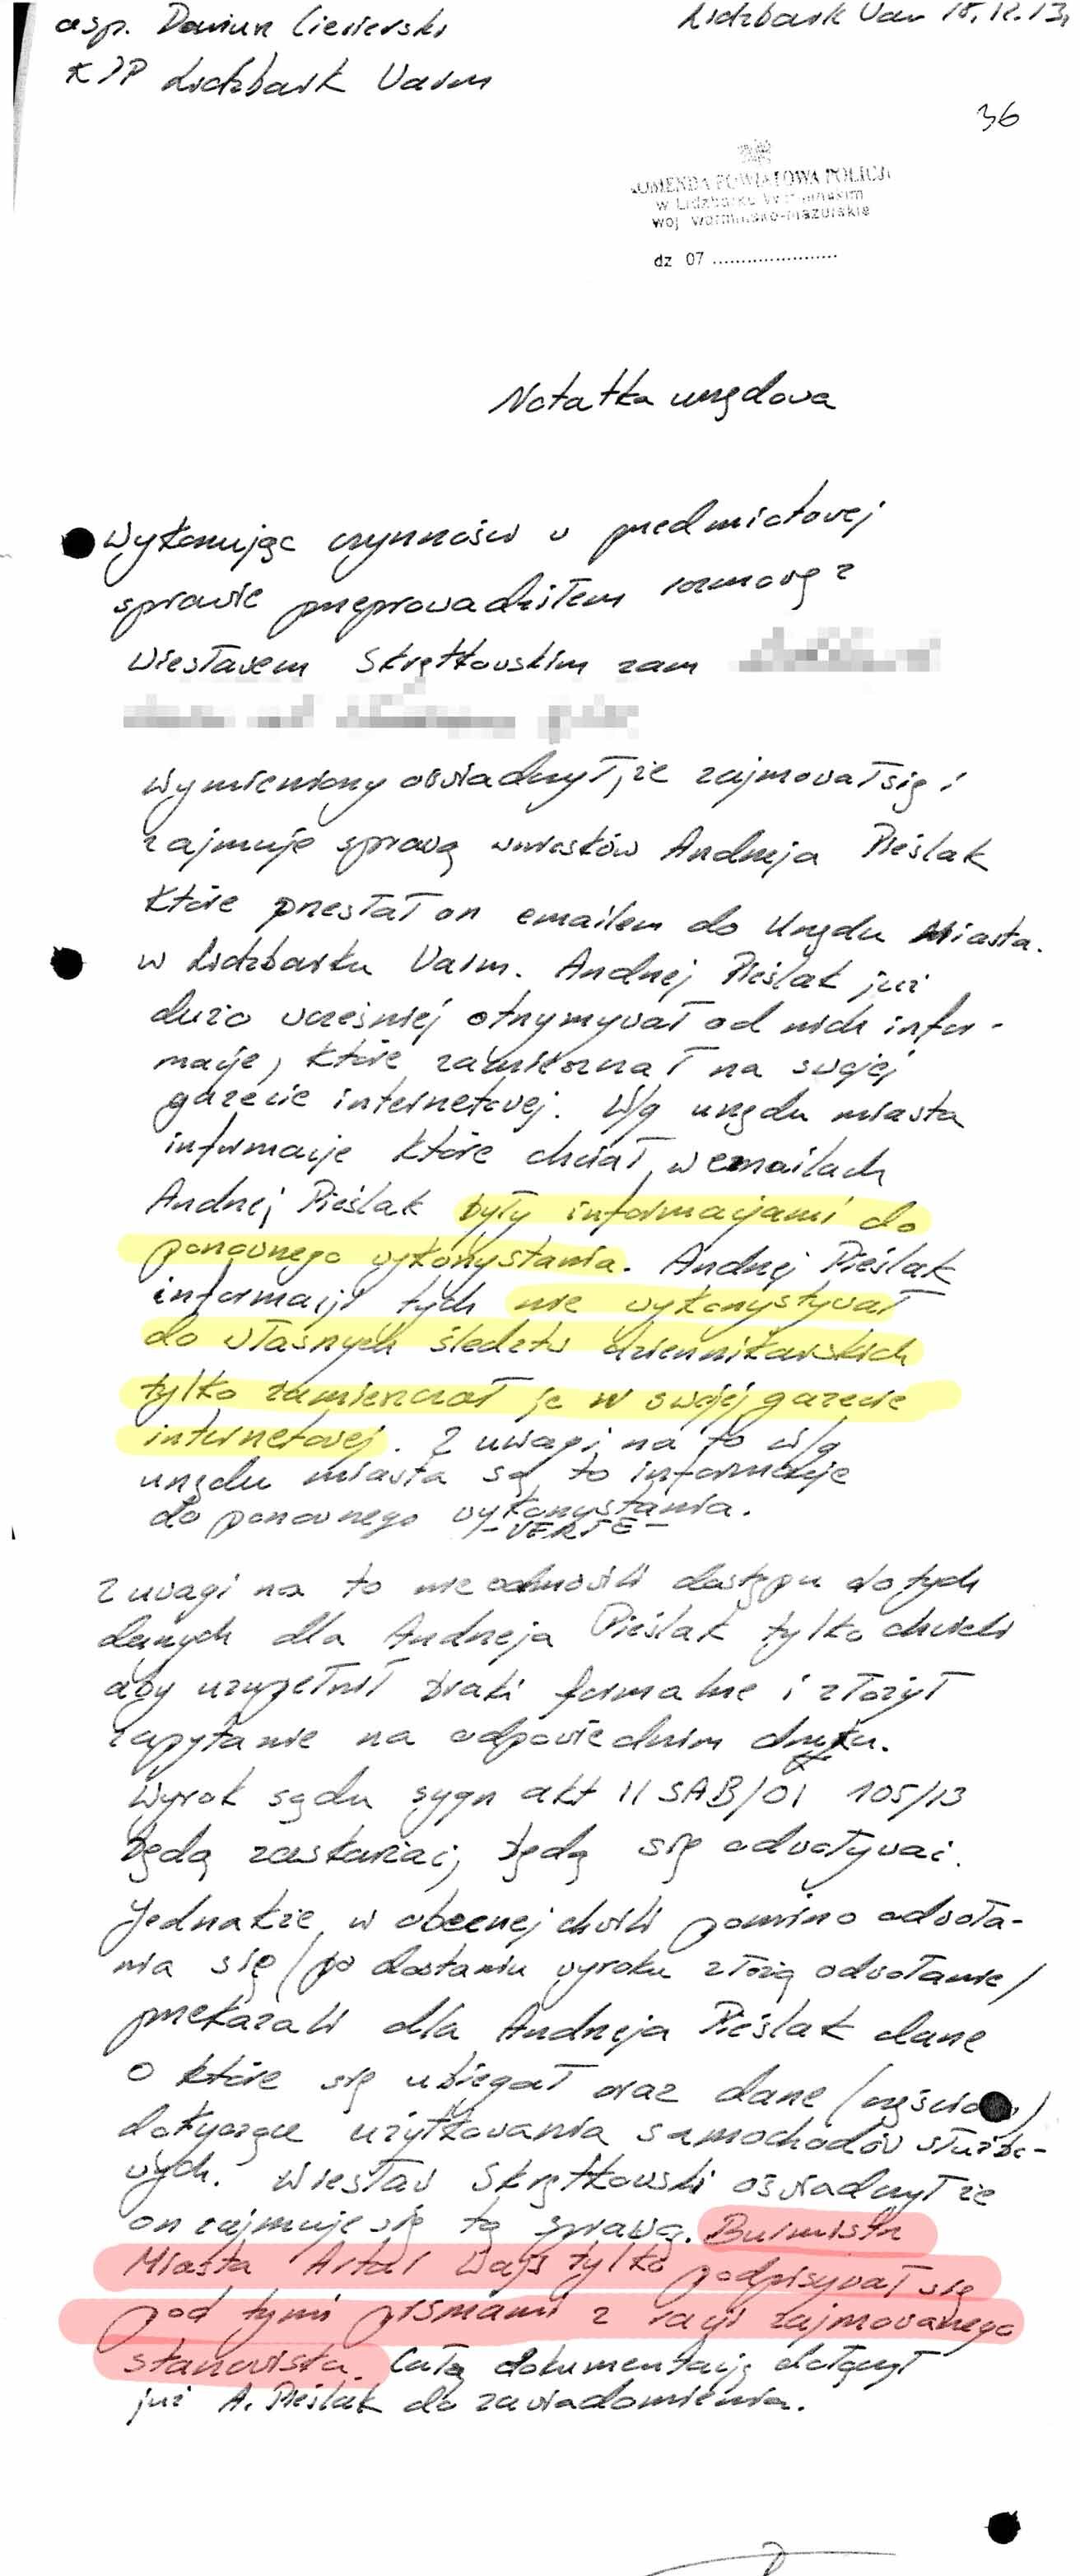 asp. Dariusz Ciesierski
Lidzbark War 18.12.13r
KPP Lidzbark Warm
36
KOMENDA POWIATOWA POLICJI
w Lidzbarku Warmińskim
woj warmińsko-mazurskie
dz 07 ......................
Notatka urzędowa
Wykonując czynności w przedmiotowej
sprawie przeprowadziłem rozmowę z
Wiesławem Skrętkowskim zam
Wymieniony oświadczył, że zajmował się i
zajmuje sprawą wniosków Andrzeja Pieślak
które przesłał on emailem do Urzędu Miasta.
w Lidzbarku Warm. Andrzej Pieślak już
dużo wcześniej otrzymywał od nich infor-
macje, które zamieszczał na swojej
gazecie internetowej. W/g urzędu miasta
informacje które chciał w emailach
Andrzej Pieślak były informacjami do
ponownego wykorzystania. Andrzej Pieślak
informacji tych nie wykorzystywał
do własnych śledztw dziennikarskich
tylko zamieszczał je w swojej gazecie
internetowej. Z uwagi na to w/g
urzędu miasta są to informacje
do ponownego wykorzystania.
-VERTE-
Z uwagi na to nie odmówili dostępu do tych
danych dla Andrzeja Pieślak tylko chcieli
aby uzupełnił braki formalne i złożył
zapytanie na odpowiednim druku.
Wyrok sądu sygn akt II SAB/Ol 105/13
będą zaskarżać, będą się odwoływać.
Jednakże w obecnej chwili pomimo odwoła-
nia się /po dostaniu wyroku złożą odwołanie/
przekazali dla Andrzeja Pieślak dane
o które się ubiegał oraz dane /częściowo/
dotyczące użytkowania samochodów służbo-
wych. Wiesław Skrętkowski oświadczył że
on zajmuje się tą sprawą. Burmistrz
Miasta Artur Wajs tylko podpisywał się
pod tymi pismami z racji zajmowanego
stanowiska. Całą dokumentację dołączył
już A. Pieślak do zawiadomienia.